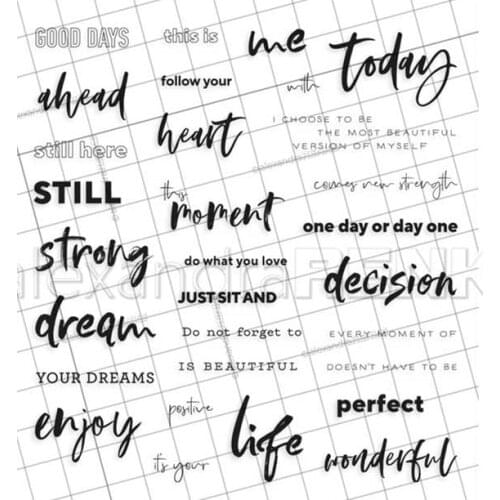 GOOD DAYS
ahead
still here
STILL
strong
dream
YOUR DREAMS
enjoy
this is
follow your
heart
this
moment
do what you love
JUST SIT AND
Do not forget to
IS BEAUTIFUL
positive
it's your
me
today
with
I CHOOSE TO BE
THE MOST BEAUTIFUL
VERSION OF MYSELF
comes new strength
one day or day one
decision
EVERY MOMENT OF
DOESN'T HAVE TO BE
perfect
life
wonderful
alexandraRENKE